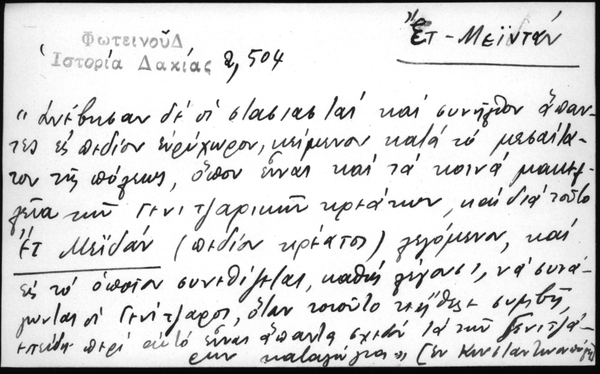 ΦωτεινοῦΔ
Ἱστορία Δακίας 2, 504
Ἔτ-Μεϊντάν
"Ἀνέβησαν δὲ οἱ στασιασταὶ καὶ συνῆλθον ἅπαν-
τες εἰς πεδίον εὐρύχωρον, κείμενον κατὰ τὸ μεσαίτα-
τον τῆς πόλεως, ὅπου εἶναι καὶ τὰ κοινὰ μακελ-
λεῖα τῶν Γενιτζαρικῶν κρεάτων, καὶ διὰ τοῦτο
Ἔτ Μεϊδάν (πεδίον κρέατος) λεγόμενον, καὶ
εἰς τὸ ὁποῖον συνεθίζεται, καθὼς λέγουσι, νὰ συνά-
γωνται οἱ Γενίτζαροι, ὅταν τοιοῦτο τι ἤθελε συμβῆ,
ἐπειδὴ περὶ αὐτὸ εἶναι ἅπαντα σχεδὸν τὰ τῶν Γενιτζά-
ρων καταλύματα" (ἐν Κωνσταντινουπόλει)